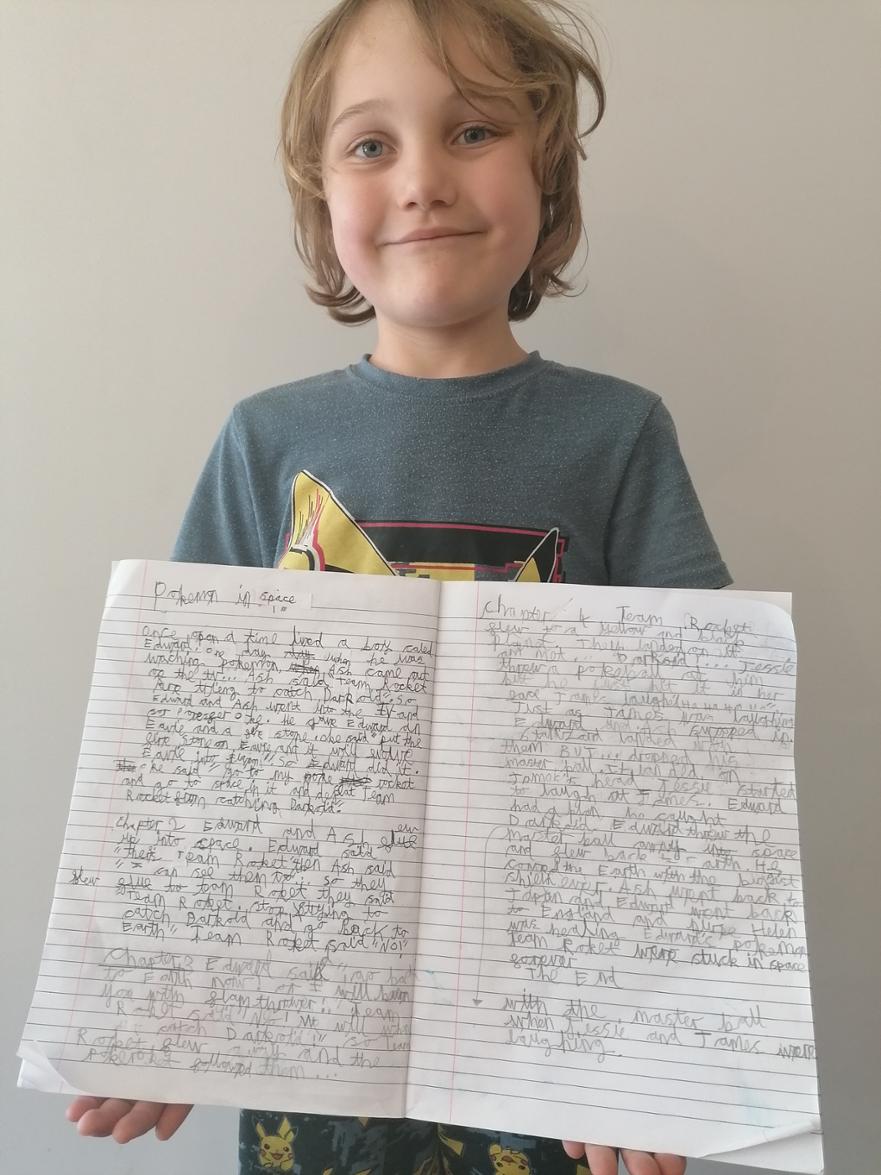 Pokemn in space
once upon a time lived a boy called
Edward. one day when he was
waching pokemon, Ash came out
of the tv... Ash said "Team Rocket
are trying to catch Darkrid", so
Edward and Ash went into the TV and
professer. He gave Edward an
Eevie and a stone. she said "put the
stone on Eevie and it will evolve
Eevie into so Edward did it.
He said "go to my poke rocket
and go to space in it and defeat Team
Rocket from catching Darkrid".
Chapter 2 Edward and Ash flew
up into space. Edward said
"theirs Team Roket" then Ash said
"I can see them to". so they
flew to team Roket. they said
"Team Roket, stop trying to
catch Darkrid and go back to
Earth" Team Roket said "NO!"
Chapter 3 Edward said "go back
to Earth now! or I will burn
you with flamthrower!" Team
Roket said "No! we will
catch Darkrid!" so Team
Roket flew and the
pokeroket followed them...
Chapter 4 Team Rocket
flew to a yellow and black
planet. They landed on it
and met... Darkrid!... Jessie
threw a pokeball at him
but he just hit it in her
face James laught "Ha Ha Ha Ha"
Just as James was laughing
Edward swooped in
and landed with
them BUT... dropped his
master ball. It landed on
James's head. Jessie started
to laugh at James. Edward
had a plan, he caught
Darkrid. Edward threw the
master ball away into space
and flew back to Earth. He
coverd the Earth with the biggest
shield ever. Ash went back to
Japan and Edward went back
to England and Nurse Helen
was healing Edward's pokemon
Team Roket were stuck in space
forever
The End
with the master ball
when Jessie and James were
laughing.